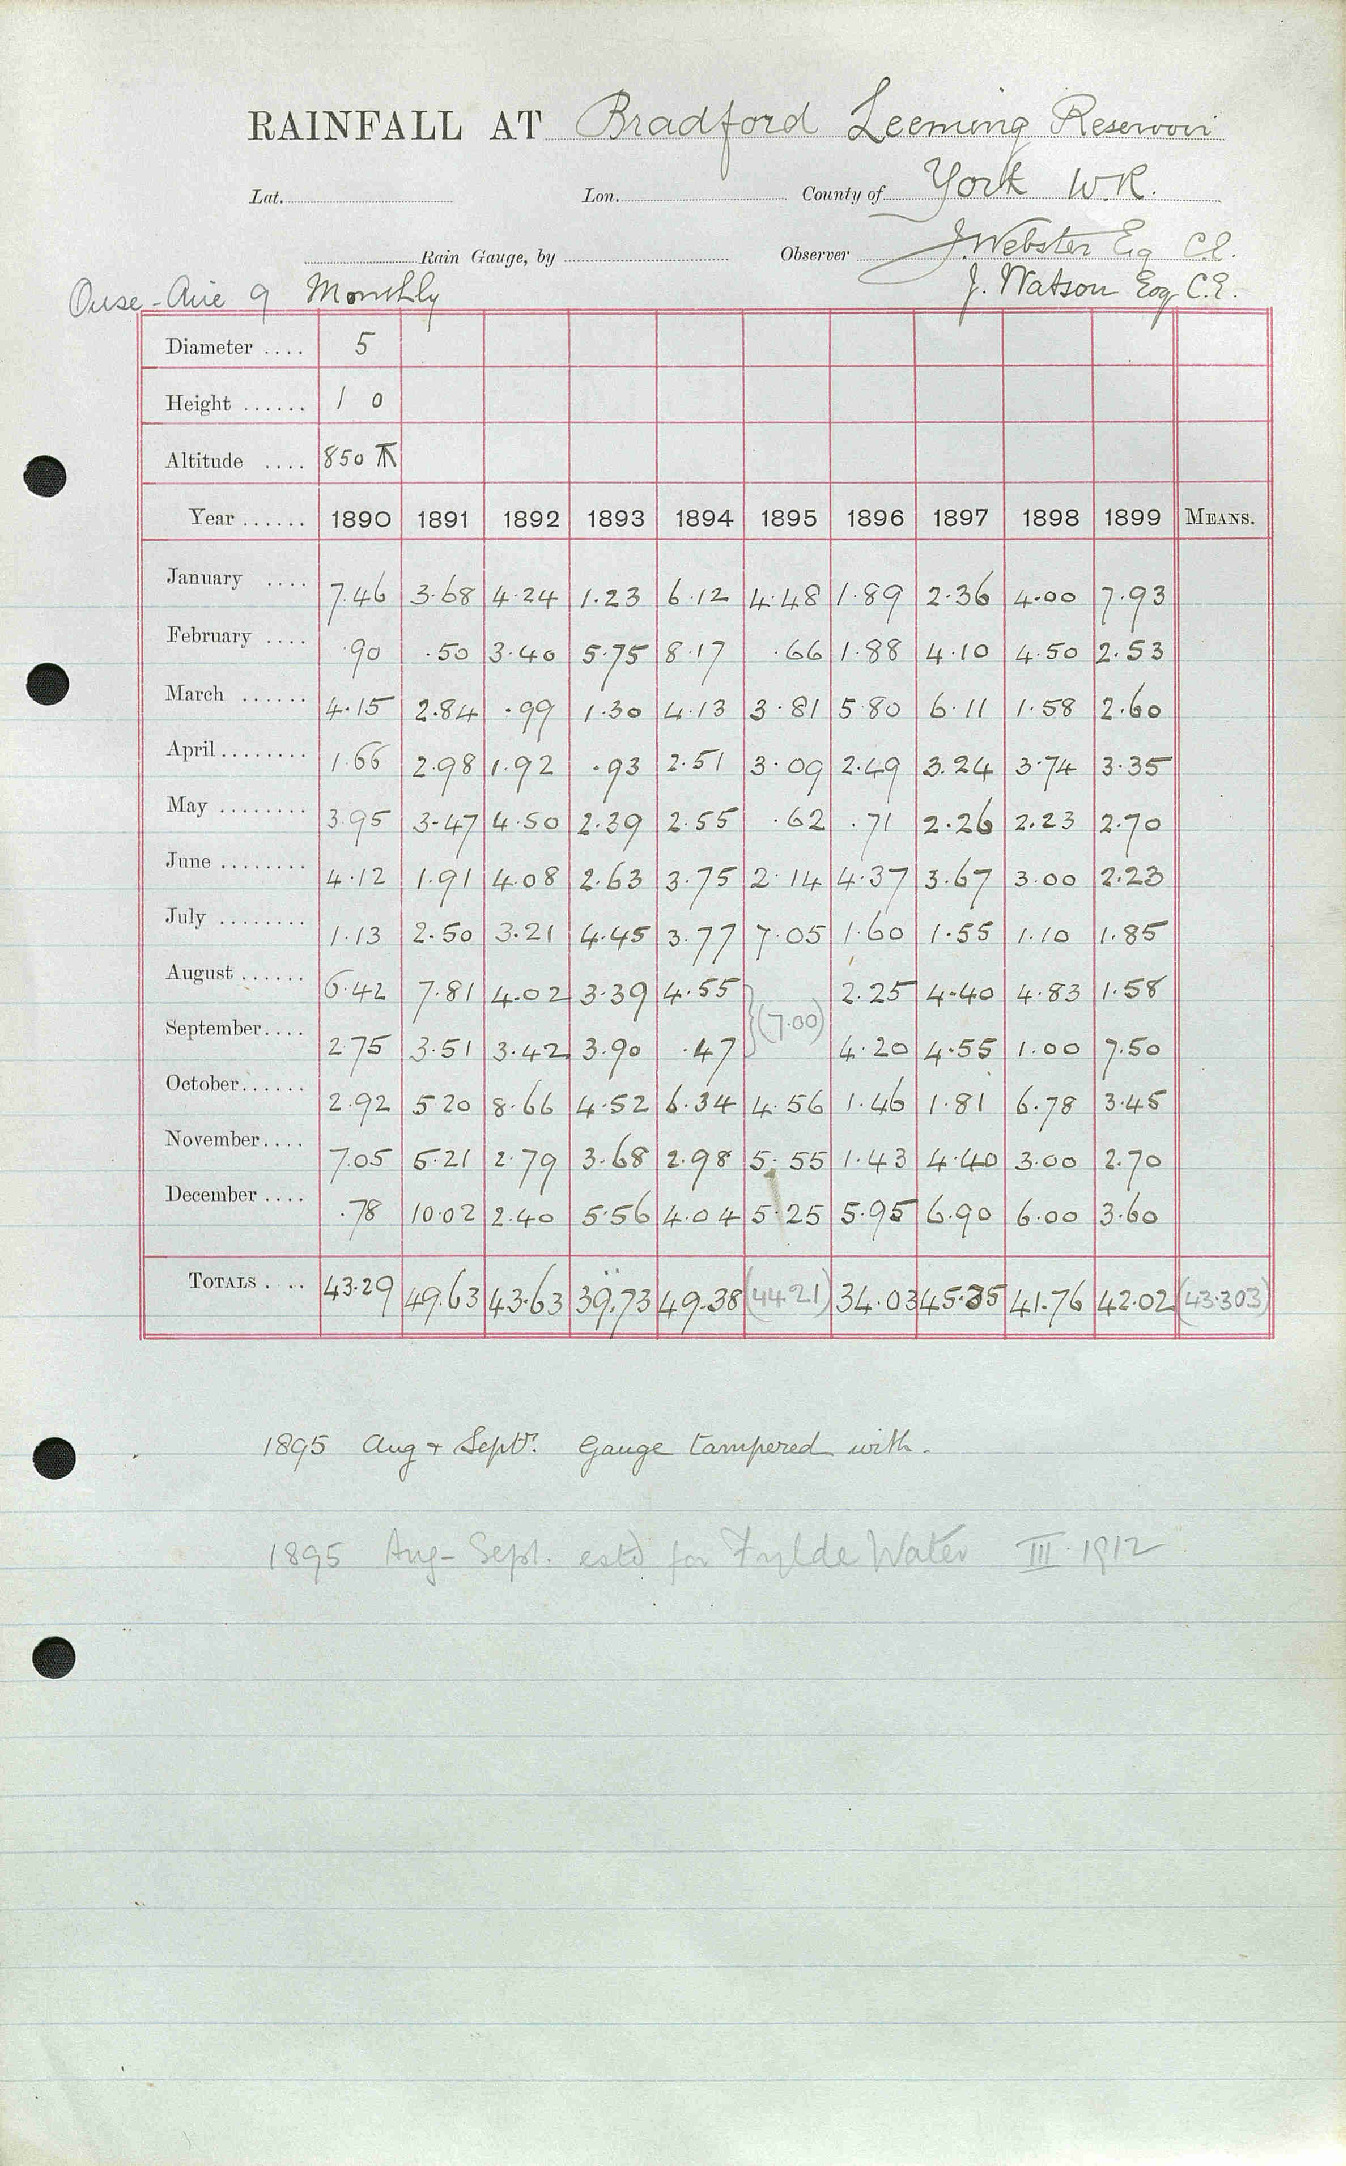 RAINFALL AT Bradford Leeming Reservoir
Lat. Lon. County of York W.R.
Rain Gauge, by Observer J. Webster Esq C.E.
Ouse-Aire 9 Monthly J. Watson Esq C.E.
Diameter .... 5
Height ...... 1 0
Altitude .... 850
Year ...... 1890 1891 1892 1893 1894 1895 1896 1897 1898 1899 MEANS.
January .... 7.46 3.68 4.24 1.23 6.12 4.48 1.89 2.36 4.00 7.93
February .... .90 .50 3.40 5.75 8.17 .66 1.88 4.10 4.50 2.53
March ...... 4.15 2.84 .99 1.30 4.13 3.81 5.80 6.11 1.58 2.60
April ........ 1.66 2.98 1.92 .93 2.51 3.09 2.49 3.24 3.74 3.35
May ........ 3.95 3.47 4.50 2.39 2.55 .62 .71 2.26 2.23 2.70
June ........ 4.12 1.91 4.08 2.63 3.75 2.14 4.37 3.67 3.00 2.23
July ........ 1.13 2.50 3.21 4.45 3.77 7.05 1.60 1.55 1.10 1.85
August ...... 6.42 7.81 4.02 3.39 4.55 2.25 4.40 4.83 1.58
(7.00)
September.... 2.75 3.51 3.42 3.90 .47 4.20 4.55 1.00 7.50
October...... 2.92 5.20 8.66 4.52 6.34 4.56 1.46 1.81 6.78 3.45
November.... 7.05 5.21 2.79 3.68 2.98 5.55 1.43 4.40 3.00 2.70
December .... .78 10.02 2.40 5.56 4.04 5.25 5.95 6.90 6.00 3.60
TOTALS .... 43.29 49.63 43.63 39.73 49.38 (44.21) 34.03 45.35 41.76 42.02 (43.303)
1895 Aug + Septr. Gauge tampered with.
1895 Aug - Sept. estd for Fylde Water III. 1912